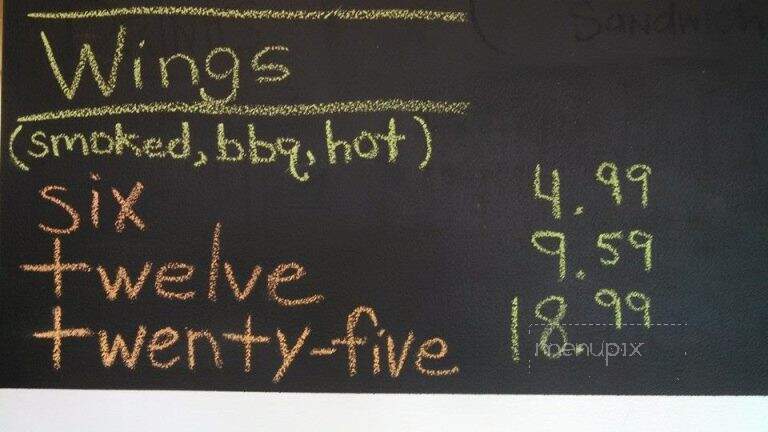 Sandwich
Wings
(smoked, bbq, hot)
six 4.99
twelve 9.59
twenty-five 18.99
menupix